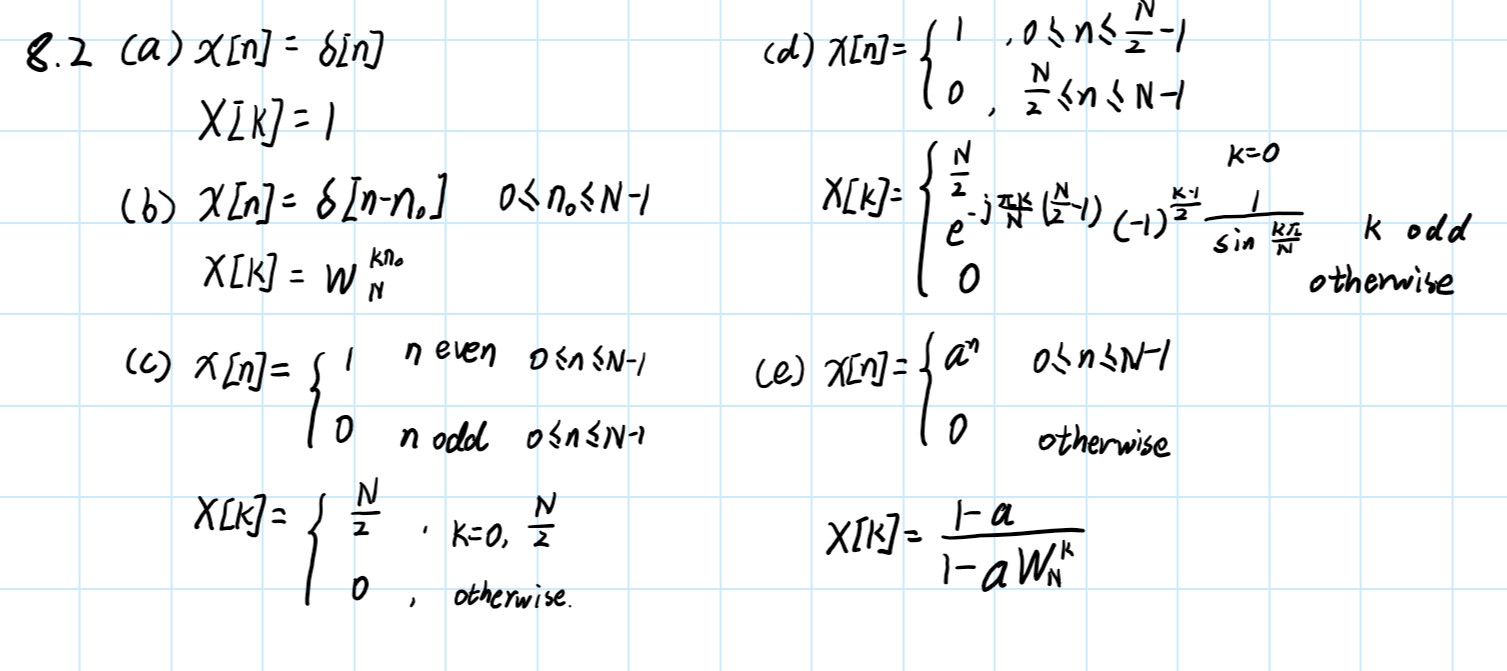 8.2 (a) x[n] = δ[n]
X[k] = 1
(b) x[n] = δ[n-n₀] 0≤n₀≤N-1
X[k] = W_N^{kn₀}
(c) x[n] = { 1 n even 0≤n≤N-1
0 n odd 0≤n≤N-1
X[k] = { N/2 , k=0, N/2
0 , otherwise.
(d) x[n] = { 1 , 0≤n≤N/2-1
0 , N/2≤n≤N-1
X[k] = { N/2 k=0
e^{-jπk/N(N/2-1)} (-1)^{(k-1)/2} 1/sin(kπ/N) k odd
0 otherwise
(e) x[n] = { aⁿ 0≤n≤N-1
0 otherwise
X[k] = (1-a)/(1-aW_N^k)